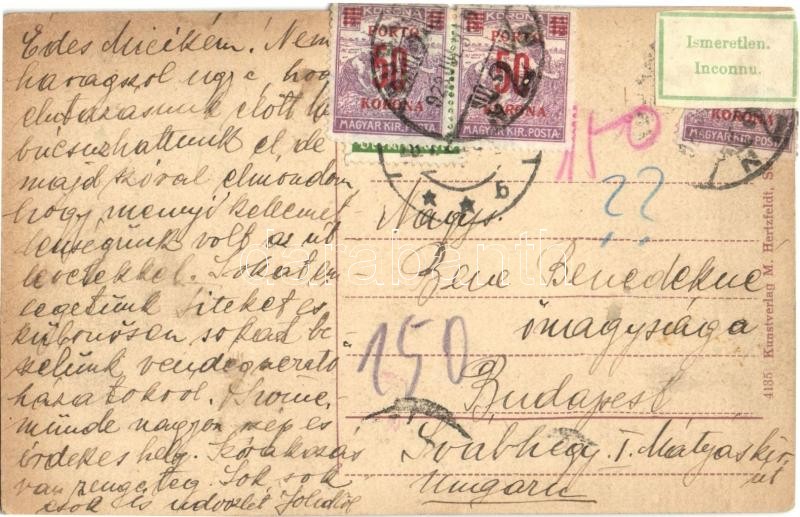 Édes Micikém! Nem
haragszol ugye hogy
elutazasunk előtt
bucsuzhattunk el, de
majd szóval elmondom
hogy mennyi kellemet-
lenségünk volt az út
levelekkel. Sokat em
legetünk titeket es
különösen sokat be-
szélünk vendegszerető
hazatokrol.
münde nagyon szép es
érdekes hely. Szórakozás
van rengeteg. Sok sok
csok és üdvözlet
KORONA
PORTO
50
KORONA
MAGYAR KIR. POSTA
KORONA
PORTO
50
KORONA
MAGYAR KIR. POSTA
Ismeretlen.
Inconnu.
KORONA
MAGYAR KIR. POSTA
150
??
Nagys.
Bene Benedekné
őnagysága
150
Budapest
Svabhegy I. Mátyas kir.
út
Ungarn
4135 Kunstverlag M. Hertzfeldt,